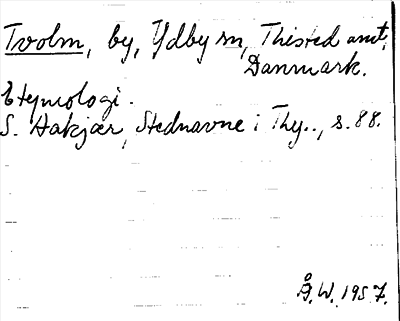 Tvolm, by, Ydby sn, Thisted amt,
Danmark.
Etymologi.
S. Hakjær, Stednavne i Thy.., s. 88.
G.W. 1957.